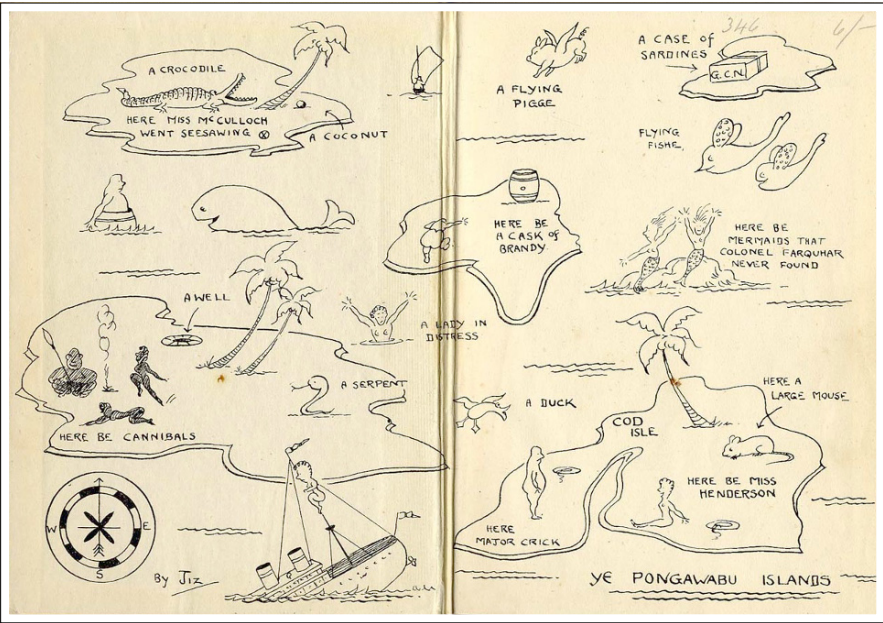 346
6/-
A CROCODILE
HERE MISS McCULLOCH
WENT SEESAWING
A COCONUT
A FLYING
PIGGE
A CASE OF
SARDINES
G.C.N.
FLYING
FISHE.
HERE BE
A CASK OF
BRANDY.
HERE BE
MERMAIDS THAT
COLONEL FARQUHAR
NEVER FOUND
A WELL
A LADY IN
DISTRESS
A SERPENT
HERE BE CANNIBALS
A DUCK
COD
ISLE
HERE A
LARGE MOUSE
HERE BE MISS
HENDERSON
HERE
MAJOR CRICK
W
E
S
By JIZ
YE PONGAWABU ISLANDS